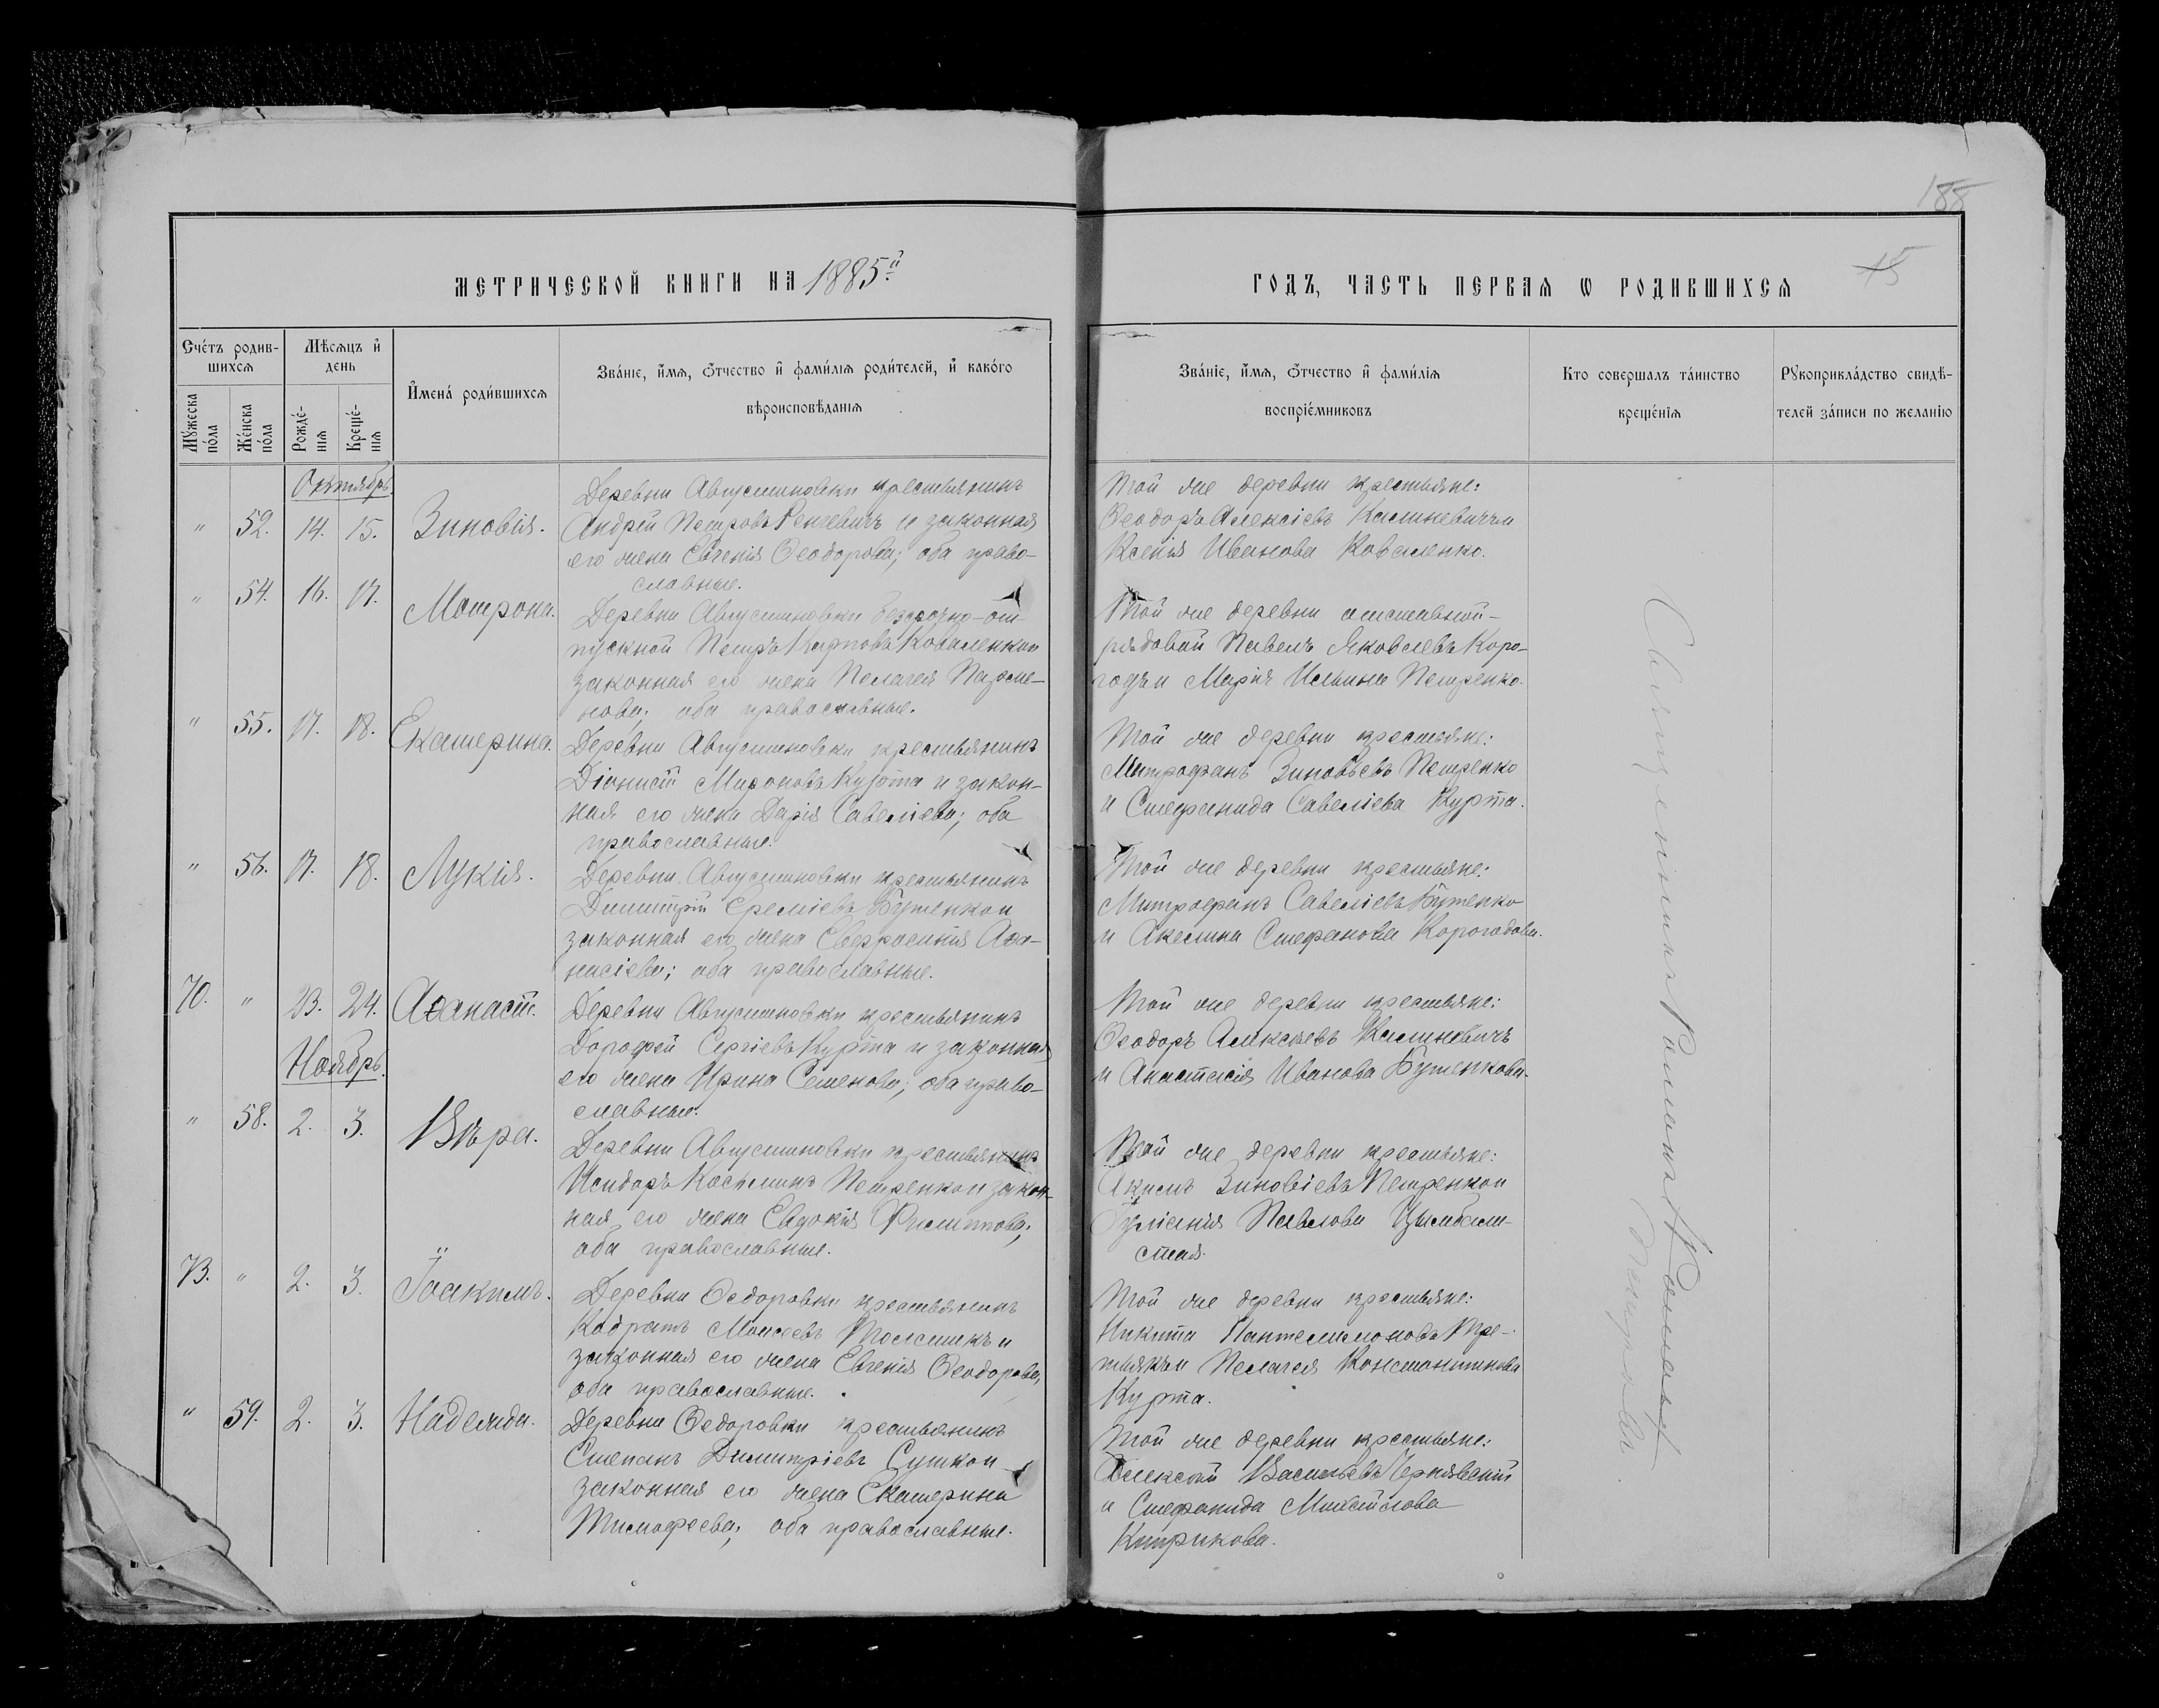 188
МЕТРИЧЕСКОЙ КНИГИ НА 1885й
ГОДЪ, ЧАСТЬ ПЕРВАЯ Ѡ РОДИВШИХСЯ
15
Счетъ родив-
шихся
Мѣсяцъ и
день
Имена родившихся
Званіе, имя, отчество и фамилія родителей, и какого
вѣроисповѣданія
Мужеска
пола
Женска
пола
Рожде-
нія
Креще-
нія
Званіе, имя, отчество и фамилія
воспріемниковъ
Кто совершалъ таинство
крещенія
Рукоприкладство свидѣ-
телей записи по желанію
Октябрь.
" 52. 14. 15. Зиновія.
Деревни Августиновки крестьянинъ
Андрей Петровъ и законная
его жена Евгенія Ѳеодорова; оба право-
славные.
Той же деревни крестьяне:
Ѳеодоръ Алексіевъ Калиневичъ и
Ксенія Иванова Коваленко.
" 54. 16. 17. Матрона.
Деревни Августиновки безсрочно-от-
пускной Петръ Карповъ Коваленко и
законная его жена Пелагея Парме-
нова; оба православные.
Той же деревни отставной-
рядовой Павелъ Яковлевъ Коро-
годъ и Марія Ильина Петренко.
" 55. 17. 18. Екатерина.
Деревни Августиновки крестьянинъ
Діонисій Мироновъ Курта и закон-
ная его жена Дарія Савеліева; оба
православные.
Той же деревни крестьяне:
Митрофанъ Зиновьевъ Петренко
и Стефанида Савеліева Курта.
" 56. 17. 18. Лукія.
Деревни Августиновки крестьянинъ
Димитрій Еремѣевъ Бутенко и
законная его жена Евфросинія Аѳа-
насіева; оба православные.
Той же деревни крестьяне:
Митрофанъ Савеліевъ Бутенко
и Акелина Стефанова Корогодова.
70. " 23. 24. Аѳанасій.
Деревни Августиновки крестьянинъ
Дорофей Сергіевъ Курта и законная
его жена Ирина Семенова; оба право-
славные.
Той же деревни крестьяне:
Ѳеодоръ Алексѣевъ Калиневичъ
и Анастасія Иванова Бутенкова.
Ноябрь.
" 58. 2. 3. Вѣра.
Деревни Августиновки крестьянинъ
Исидоръ Косьминъ Петренко и закон-
ная его жена Евдокія Филиппова;
оба православные.
Той же деревни крестьяне:
Акимъ Зиновіевъ Петренко и
Іуліанія Павлова Цымбали-
стая.
73. " 2. 3. Іоакимъ.
Деревни Ѳедоровки крестьянинъ
Кодратъ Моисеевъ и
законная его жена Евгенія Ѳеодорова,
оба православные.
Той же деревни крестьяне:
Никита Пантелимоновъ Тре-
тьякъ и Пелагея Константинова
Курта.
" 59. 2. 3. Надежда.
Деревни Ѳедоровки крестьянинъ
Степанъ Димитріевъ Сушко и
законная его жена Екатерина
Тимофеева; оба православные.
Той же деревни крестьяне:
Алексѣй Васильевъ Чернявскій
и Стефанида Михайлова
Священникъ Романъ